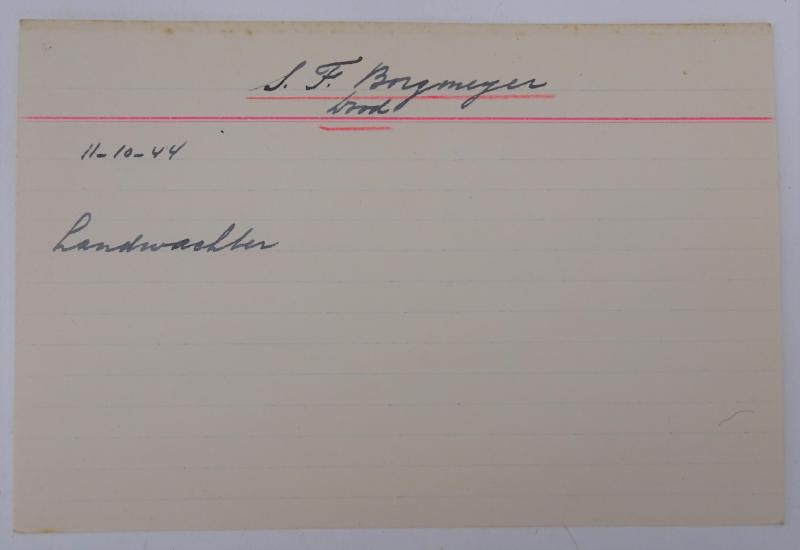 S. F. Borgmeyer
Dood
11-10-44
Landwachter